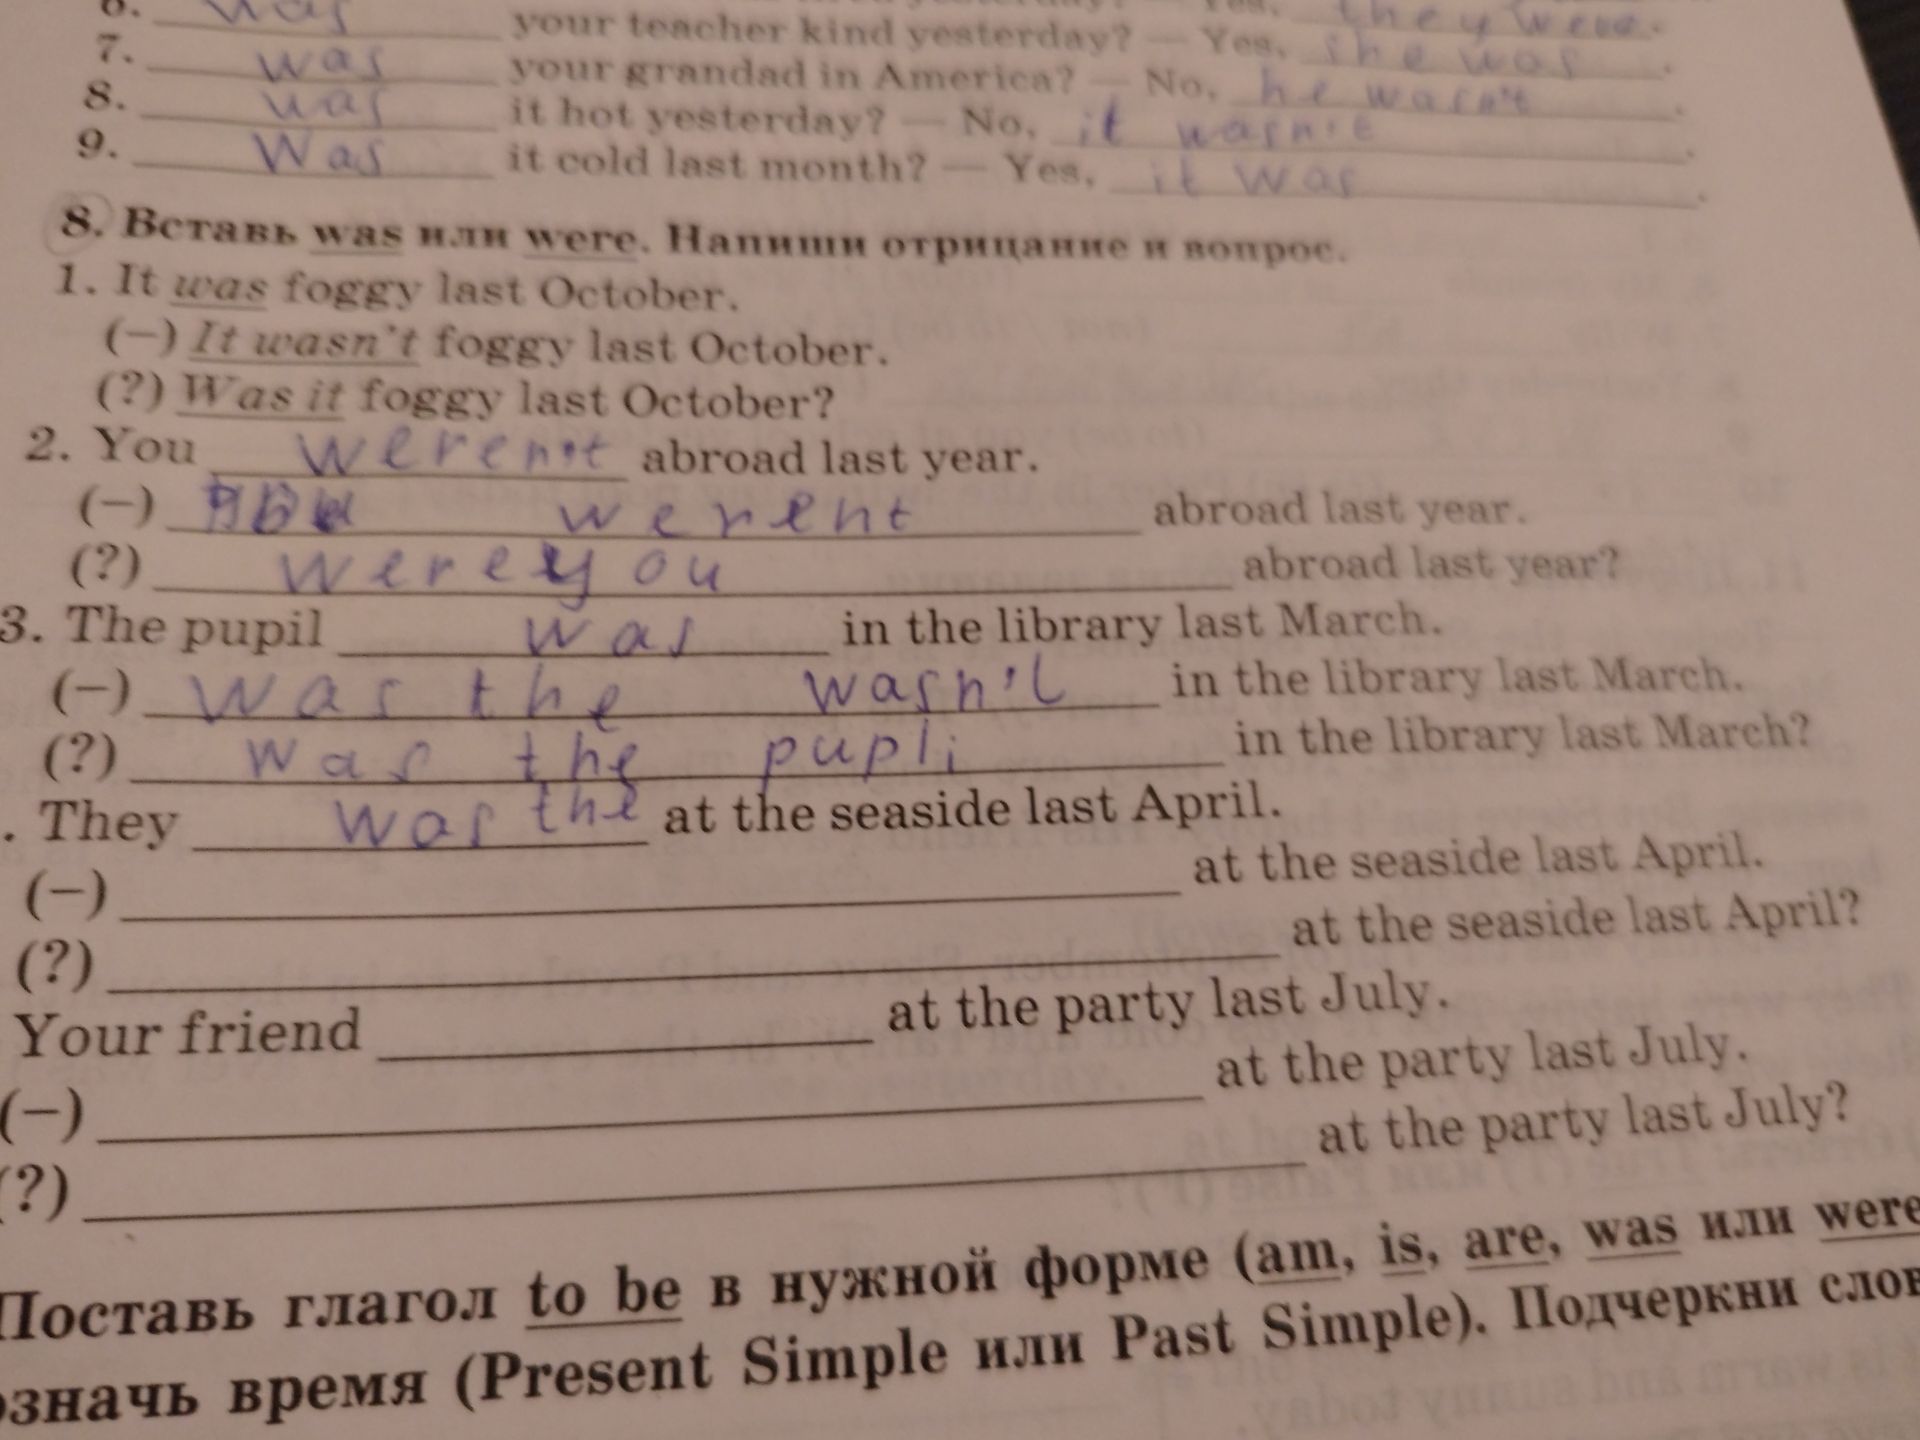 6. was your teacher kind yesterday? — Yes, she was.
7. was your grandad in America? — No, he wasn't.
8. was it hot yesterday? — No, it wasn't.
9. Was it cold last month? — Yes, it was.
8. Вставь was или were. Напиши отрицание и вопрос.
1. It was foggy last October.
(–) It wasn't foggy last October.
(?) Was it foggy last October?
2. You weren't abroad last year.
(–) werent abroad last year.
(?) were you abroad last year?
3. The pupil was in the library last March.
(–) was the wasn't in the library last March.
(?) was the pupli in the library last March?
. They was the at the seaside last April.
(–) at the seaside last April.
(?) at the seaside last April?
Your friend at the party last July.
(–) at the party last July.
(?) at the party last July?
Поставь глагол to be в нужной форме (am, is, are, was или were
означь время (Present Simple или Past Simple). Подчеркни слов